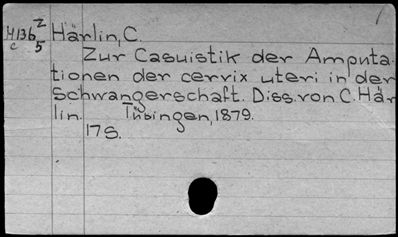 H136 Z/5 Härlin, C.
c
Zur Casuistik der Amputa-
tionen der cervix uteri in der
Schwangerschaft. Diss. von C. Här
lin. Tübingen, 1879.
17 S.